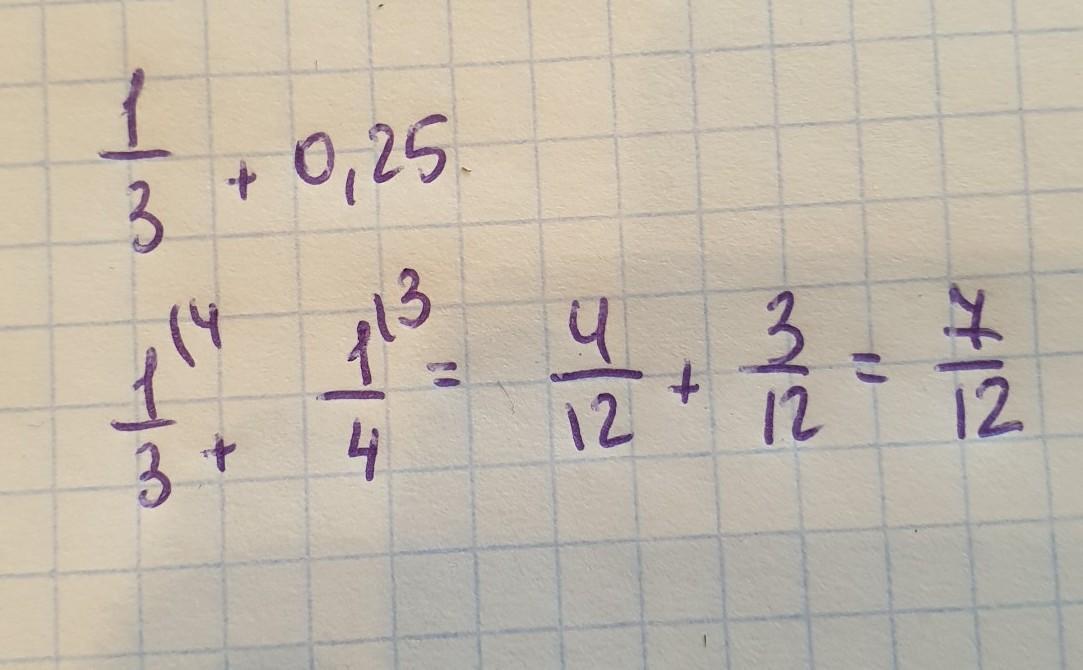 1/3 + 0,25
1/3 (4 + 1/4 (3 = 4/12 + 3/12 = 7/12